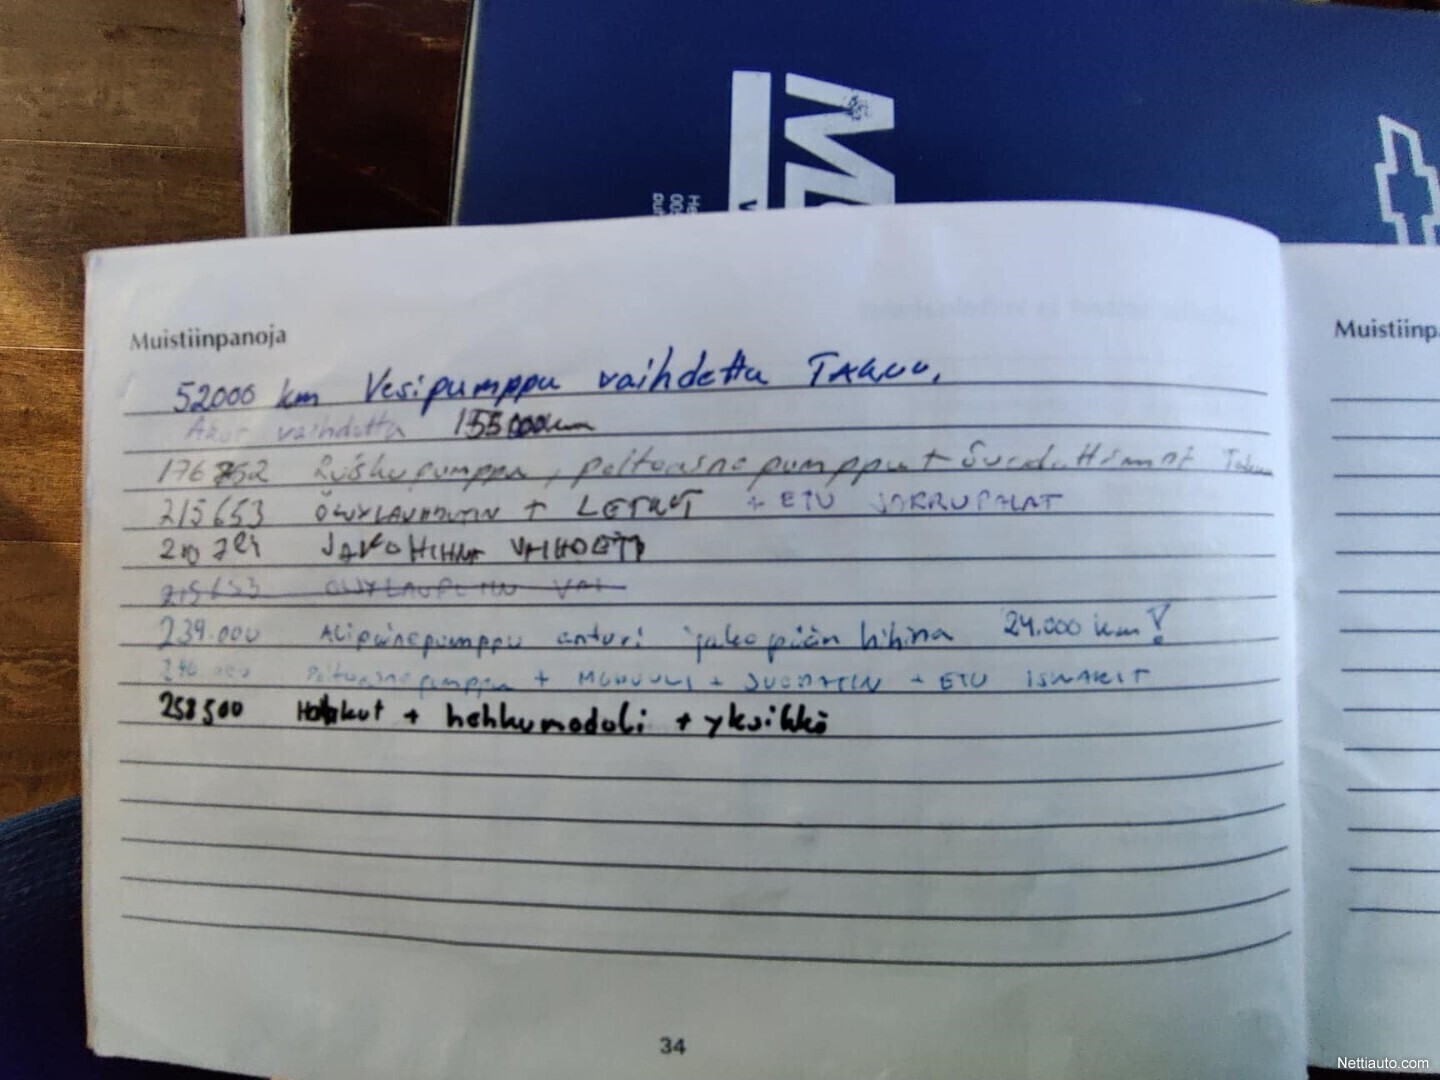 Muistiinpanoja
Muistiinp
52000 km Vesipumppu vaihdettu TAKUU.
vaihdettu 155000km
176 752 Ruiskupumppu, polttoainepumppu +
215653 ÖLJYLAUHDUTIN + LETKUT + ETU JARRUPALAT
JAKOHIHNA VAIHDETTU
215653 VAI
239.000 Alipainepumppu anturi jakopään hihna 24.000 km!
Polttoainepumppu + MODUULI + SUODATIN + ETU ISKARIT
258500 + hehkumoduli + yksikkö
34
Nettiauto.com